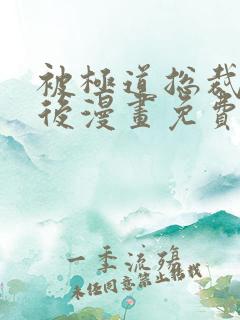 被極道总裁
後漫畫免費
一季流殤
未经同意禁止转载